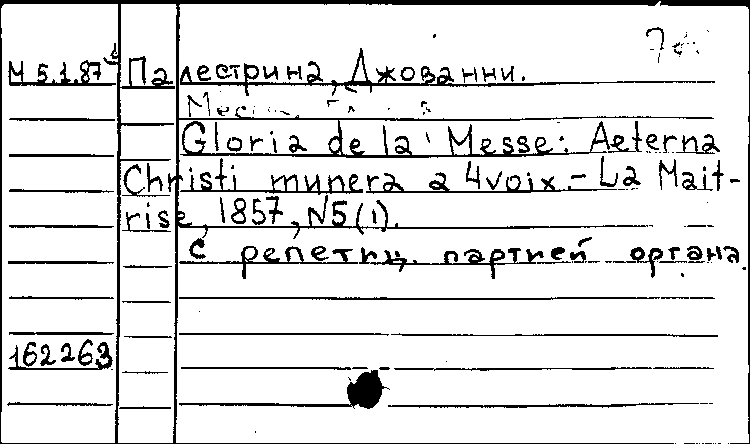 М 5.1.87 Палестрина, Джованни.
Gloria de la Messe: Aeterna
Christi munera a 4voix.- La Mait-
rise, 1857, N5(1).
с репетиц. партией органа.
162263